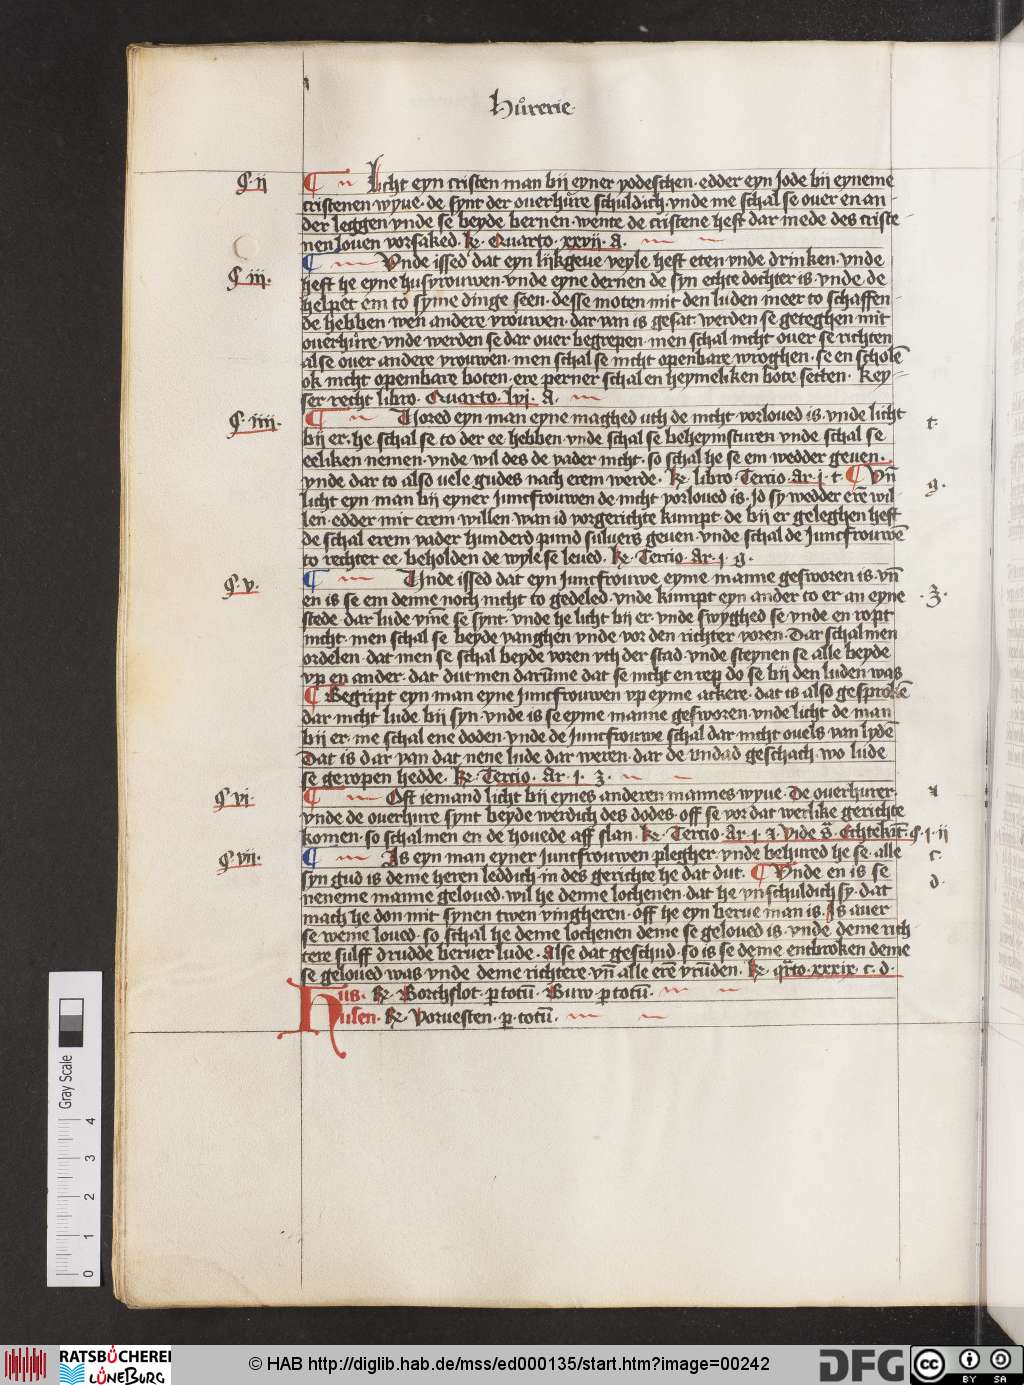 Hůrerie·
§·ij
¶ Licht eyn cristen man bij eyner yodeschen· edder eyn Jode bij eyneme
cristenen wyue· de synt der ouerhůre schuldich vnde me schal se ouer en an-
der leggen· vnde se beyde bernen· wente de cristene heft dar mede des criste-
nen louen vorsaked· R· Quarto· xxvij· a·
§·iij·
¶ Vnde issed dat eyn lijkgeue veyle heft eten vnde drinken· vnde
heft he eyne husvrouwen· vnde eyne dernen de syn echte dochter is· vnde· de
helpet em to syme dinge seen· desse moten mit den luden meer to schaffen-
de hebben· wen andere vrouwen· dar van is gesat· werden se geteghen mit
ouerhůre· vnde werden se dar ouer begrepen· men schal nicht ouer se richten
alse ouer andere vrouwen· men schal se nicht openbare wroghen· se en scholē
ok nicht openbare boten· ere perner schal en heymeliken bote setten· Key-
ser recht libro· Quarto· lvj· a·
§·iiij·
¶ Vored eyn man eyne maghed uth de nicht vorloued is· vnde licht
t·
bij er· he schal se to der ee hebben· vnde schal se beheymsturen vnde schal se
eeliken nemen· vnde wil des de vader nicht· so schal he se em wedder geuen·
vnde dar to also vele gudes nach erem werde· R· libro· Tercio· Ar· j· t· ¶ Vn̄
g·
licht eyn man bij eyner Juncfrouwen de nicht vorloued is· Jd sy wedder erē wil-
len· edder mit erem willen· wan id vorgerichte kumpt· de bij er geleghen heft
de schal erem vader hunderd pund suluers geuen· vnde schal de Juncfrouwē
to rechter ee· beholden de wyle se leued· R· Tercio· Ar· j· g·
§·v·
¶ Vnde issed dat eyn Juncfrouwe eyme manne gesworen is· vn̄
en is se em denne noch nicht to gedeled· vnde kumpt eyn ander to er an eyne
·ʒ·
stede· dar lude ynne se synt· vnde he licht bij er· vnde swyghed se vnde en ropt
nicht· men schal se beyde vanghen vnde vor den richter voren· Dar schal men
ordelen· dat men se schal beyde voren vth der stad· vnde steynen se alle beyde
vp en ander· dat dut men darumme dat se nicht en rep do se bij den luden was
¶ Begript eyn man eyne Juncfrouwen vp eyme ackere· dat is also gesprokē
dar nicht lude bij syn· vnde is se eyme manne gesworen· vnde licht de man
bij er· me schal ene doden· vnde de Juncfrouwe schal dar nicht ouels van lydē
Dat is dar van dat nene lude dar weren· dar de undad geschach· wo lude
se geropen hedde· R· Tercio· Ar· j· ʒ·
§·vj·
¶ Oft iemand licht bij eynes anderen mannes wyue· De ouerhurer·
vnde de ouerhure synt beyde werdich des dodes· off se vor dat werlike gerichte
komen· so schal men en de houede aff slan· R· Tercio Ar· j· Vide s̄· Echtekīt· §·j·ij
§·vij·
¶ Is eyn man eyner Juncfrouwen plegher· vnde behured he se· alle
c·
syn gud is deme heren leddich· in des gerichte he dat dut· ¶ Vnde en is se
d·
neneme manne geloued· wil he denne lochenen· dat he vnschuldich sy· dat
mach he don mit synen twen vingheren· off he eyn berue man is· Is auer
se weme loued· so schal he deme lochenen deme se geloued is· vnde deme rich-
tere sulff drudde beruer lude· alse dat geschud· so is se deme entbroken deme
se geloued was· vnde deme richtere vn̄ alle erē vrunden· R· q̄rto· xxxix· c· d·
Hus· R· Borchslot· p totū· Buw p totū·
Husen· R· Voruesten· p· totū·
Gray Scale
0 1 2 3 4
RATSBÜCHEREI
LÜNEBURG
© HAB http://diglib.hab.de/mss/ed000135/start.htm?image=00242
DFG
cc BY SA